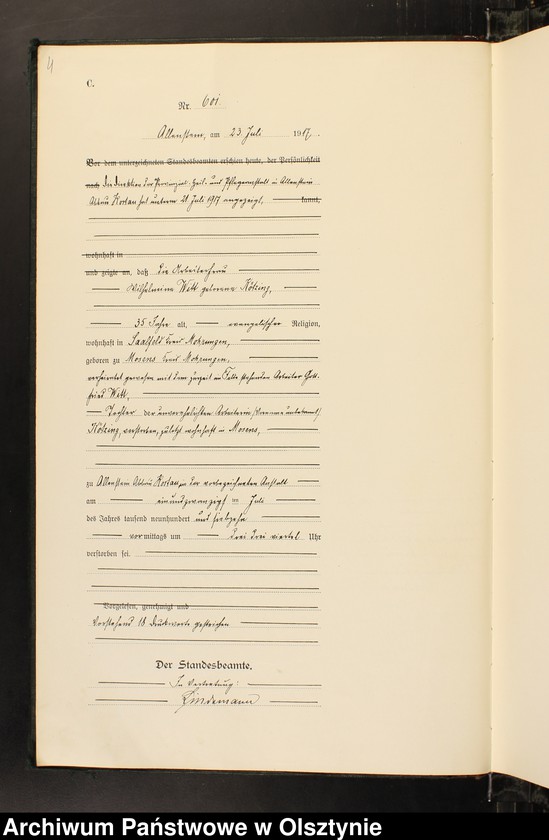 4
C.
Nr. 601.
Allenstein, am 23. Juli 1917.
Vor dem unterzeichneten Standesbeamten erschien heute, der Persönlichkeit
nach Die Direktion der Provinzial-Heil- und Pflegeanstalt in Allenstein
Abbau Kortau hat unterm 21. Juli 1917 angezeigt, kannt,
wohnhaft in
und zeigte an, daß die Arbeiterfrau
Wilhelmine Witt geborene Kötzing,
35 Jahre alt, evangelischer Religion,
wohnhaft in Saalfeld Kreis Mohrungen,
geboren zu Mosens Kreis Mohrungen,
verheiratet gewesen mit dem zurzeit im Felde stehenden Arbeiter Gott-
fried Witt,
Tochter der unverehelichten Arbeiterin (Vorname unbekannt)
Kötzing, verstorben, zuletzt wohnhaft in Mosens,
zu Allenstein Abbau Kortau, in der vorbezeichneten Anstalt
am einundzwanzigsten Juli
des Jahres tausend neunhundert und siebzehn
vormittags um drei drei viertel Uhr
verstorben sei.
Vorgelesen, genehmigt und
Vorstehend 18 Druckworte gestrichen
Der Standesbeamte.
In Vertretung:
Lindemann
Archiwum Państwowe w Olsztynie